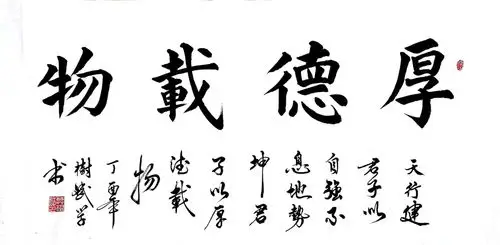 厚德載物
天行建
君子以
自強不
息地勢
坤君
子以厚
德載
物
丁酉年
樹斌学